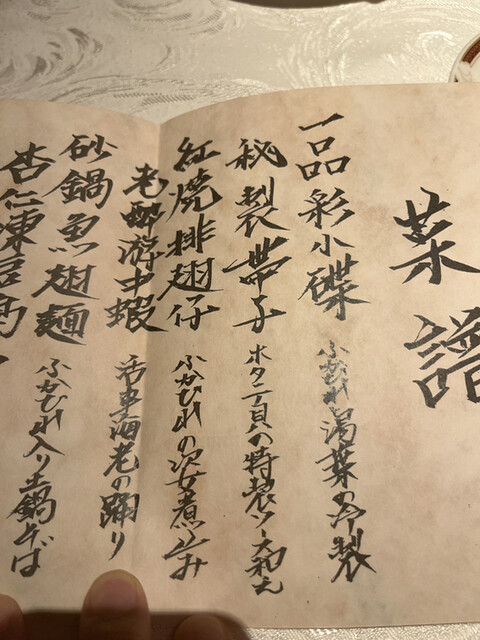 菜譜
一品彩小碟
ふかひれ湯葉の冷製
秘製帶子
ホタテ貝の特製ソース和え
紅焼排翅仔
ふかひれの姿煮込み
老酔游中蝦
活車海老の踊り
砂鍋魚翅麺
ふかひれ入り土鍋そば
杏仁凍